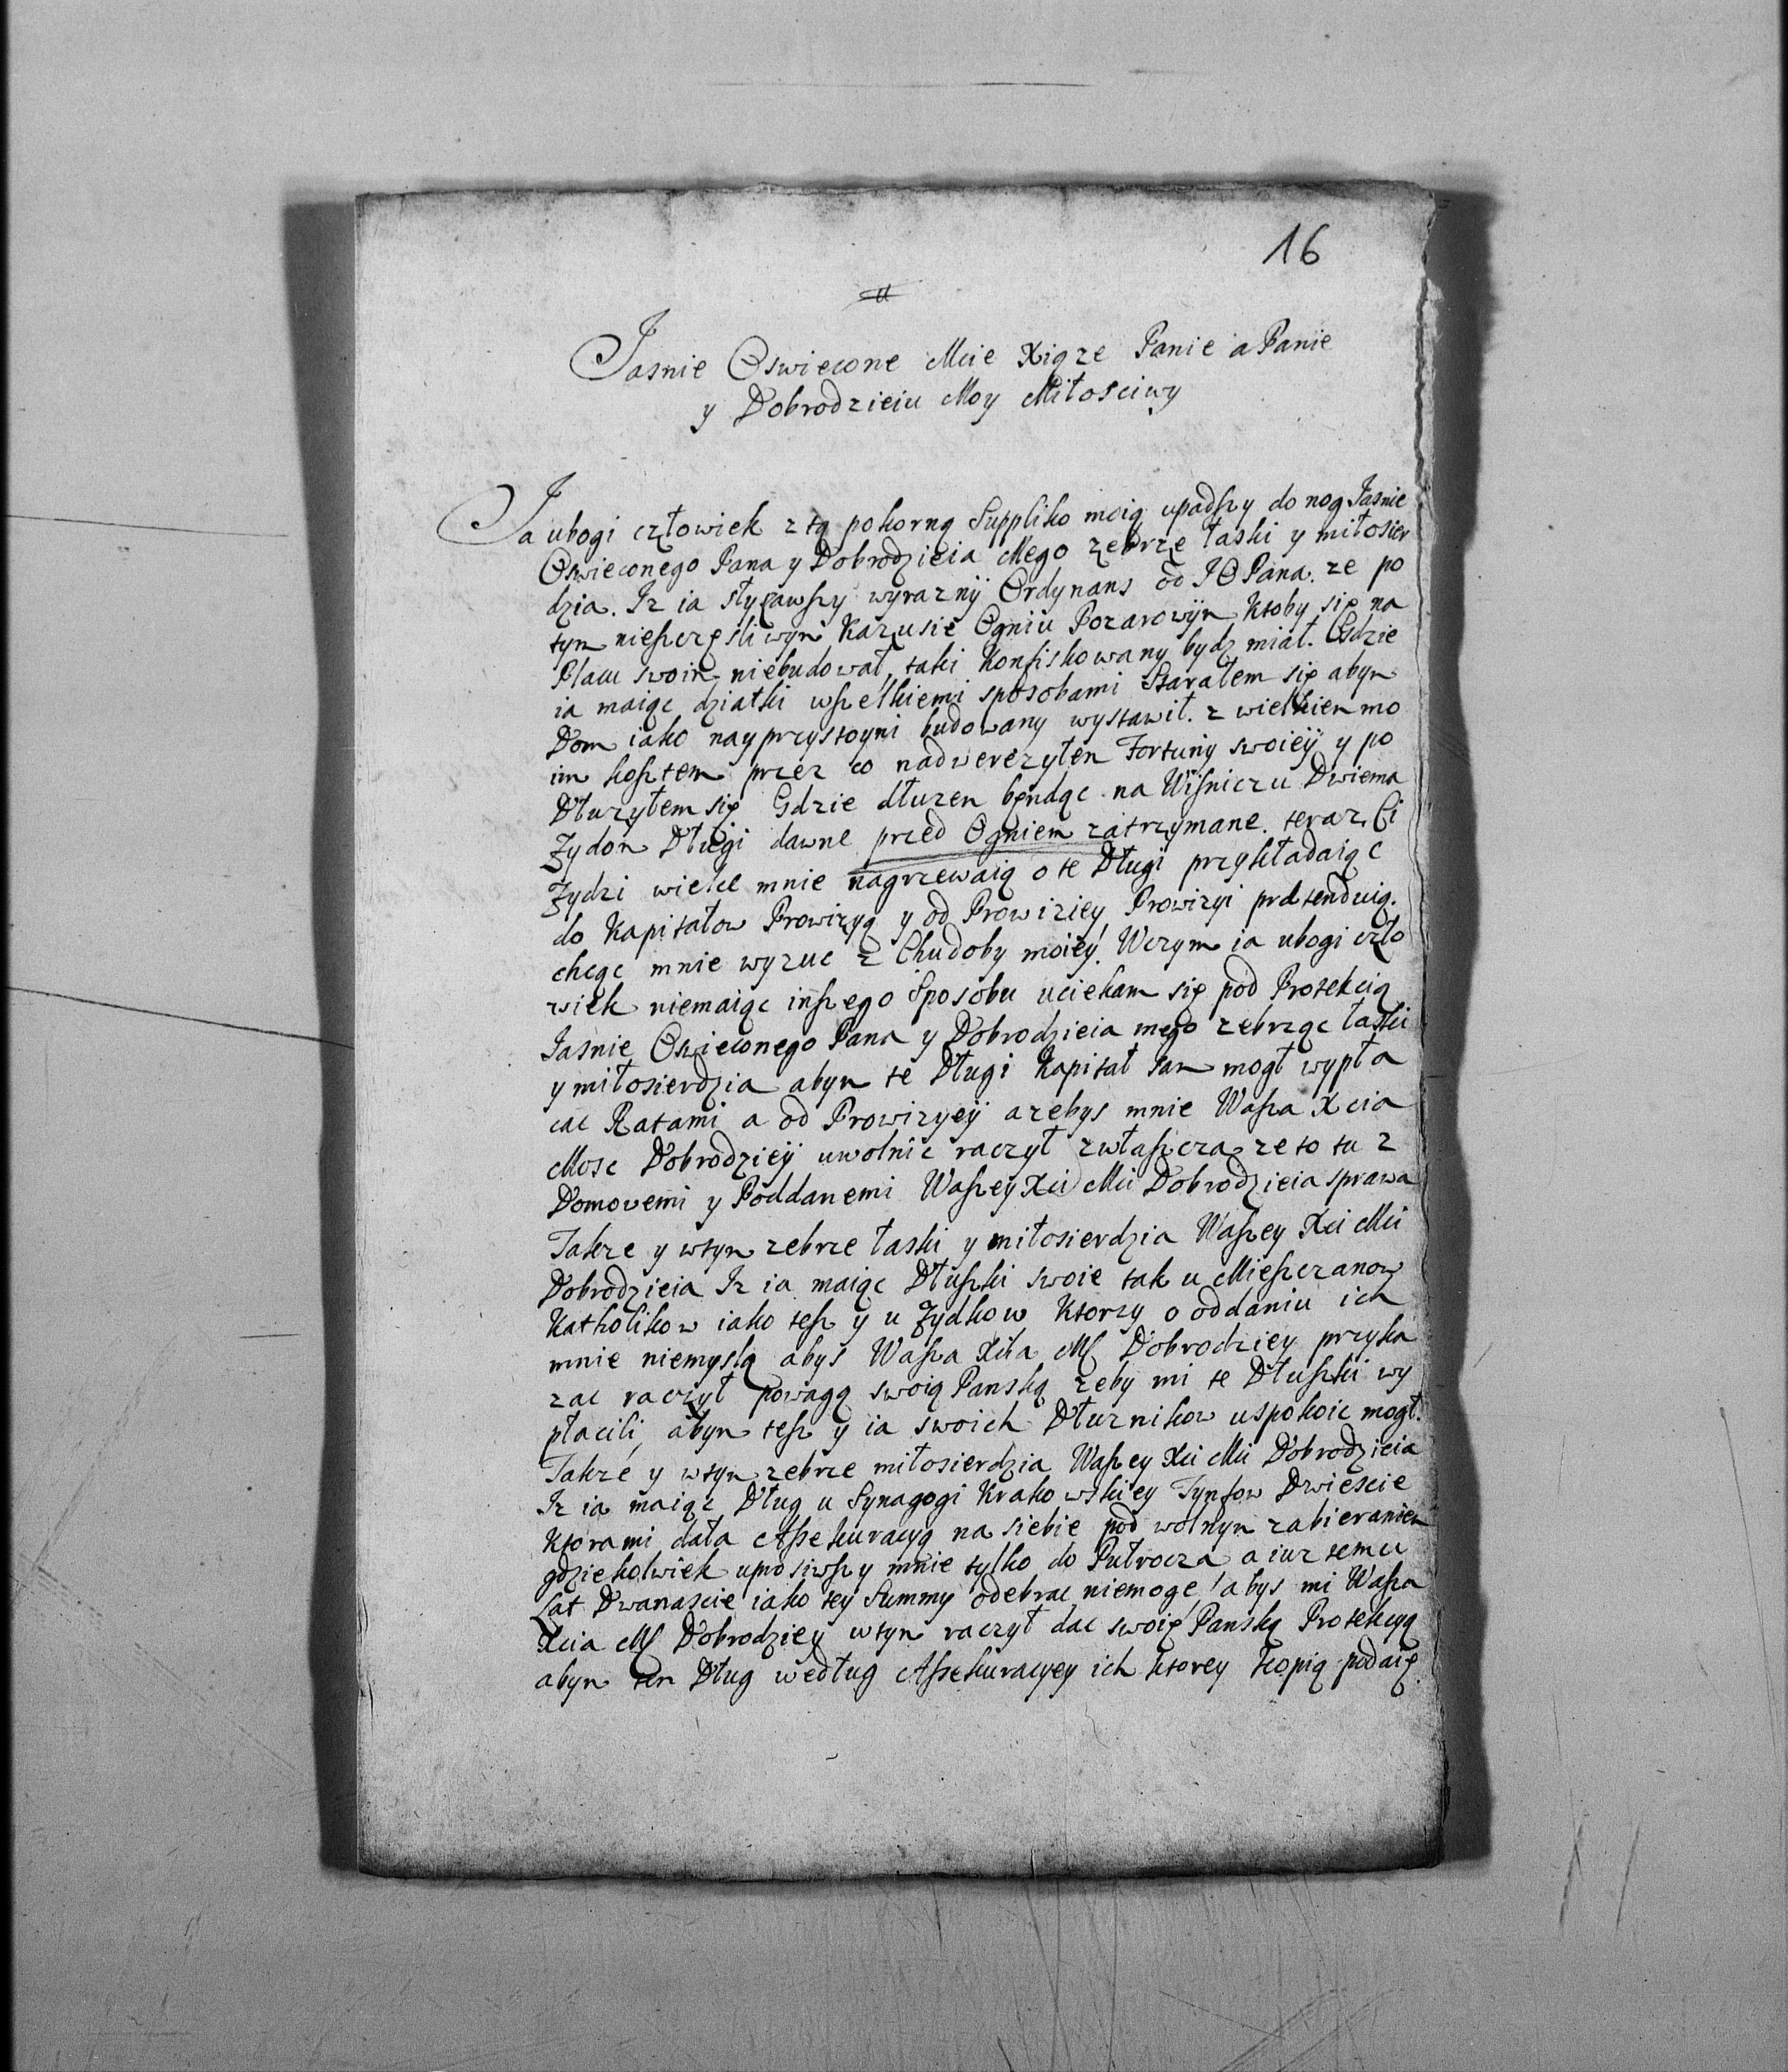 16
Jasnie Oswiecone Mcie Xiąze Panie a Panie
y Dobrodzieiu Moy Miłosciwy
Ja ubogi człowiek z tą pokorną Suppliko moią upadszy do nog Jasnie
Oswieconego Pana y Dobrodzieia Mego zebrze łaski y miłosier
dzia. Iz ia słyszawszy wyrazny Ordynans od J O Pana. ze po
tym nieszczęsliwym Kazusie Ogniu Pozarowym ktoby się na
Placu swoim niebudował, taki konfiskowany bydz miał. Gdzie
ia maiąc dziatki wszelkiemi sposobami Starałem się abym
Dom iako nayprzystoyni budowany wystawił. z wielkiem mo
im kosztem przez co nadwerezyłem Fortuny swoiey y po
Dłuzyłem się Gdzie dłuzen będąc na Wisniczu Dwiema
Zydom Długi dawne przed Ogniem zatrzymane. teraz Ci
Zydzi wielce mnie nagrzewaią o te Długi przykładaiąc
do Kapitałow Prowizyą y od Prowiziey Prowizyi praetenduią.
chcąc mnie wyzuc z Chudoby moiey. Wczym ia ubogi czło
wiek niemaiąc inszego Sposobu uciekam się pod Protekcią
Jasnie Oswieconego Pana y Dobrodzieia mego zebrząc łaski
y miłosierdzia abym te Długi Kapitał sam mogł wypła
cac Ratami a od Prowizyey azebys mnie Wasza Xcia
Mosc Dobrodziey uwolnic raczył zwłaszcza ze to tu z
Domowemi y Poddanemi Waszey Xci Mci Dobrodzieia sprawa
Takze y wtym zebrze łaski y miłosierdzia Waszey Xci Mci
Dobrodzieia Iz ia maiąc Dłuszki swoie tak u Mieszczanow
Katholikow iako tesz y u Zydkow Ktorzy o oddaniu ich
mnie niemyslą abys Wasza Xcia Ms Dobrodziey przyka
zac raczył powagą swoią Panską zeby mi te Dłuszki wy
płacili, abym tesz y ia swoich Dłuznikow uspokoic mogł.
Takze y wtym zebrze miłosierdzia Waszey Xci Mci Dobrodzieia
Iz ia maiąc Dług u Synagogi Krakowskiey Tynfow Dwiescie
Ktorami dała Assekuracyą na siebie pod wolnym zabieraniem
gdziekolwiek uprosiwszy mnie tylko do Pułrocza a iuz temu
Lat Dwanascie iako tey Summy odebrac niemoge, abys mi Wasza
Xcia Ms Dobrodziey wtym raczył dac swoię Panską Protekcyą
abym ten Dług według Assekuracyey ich ktorey kopią podaię.